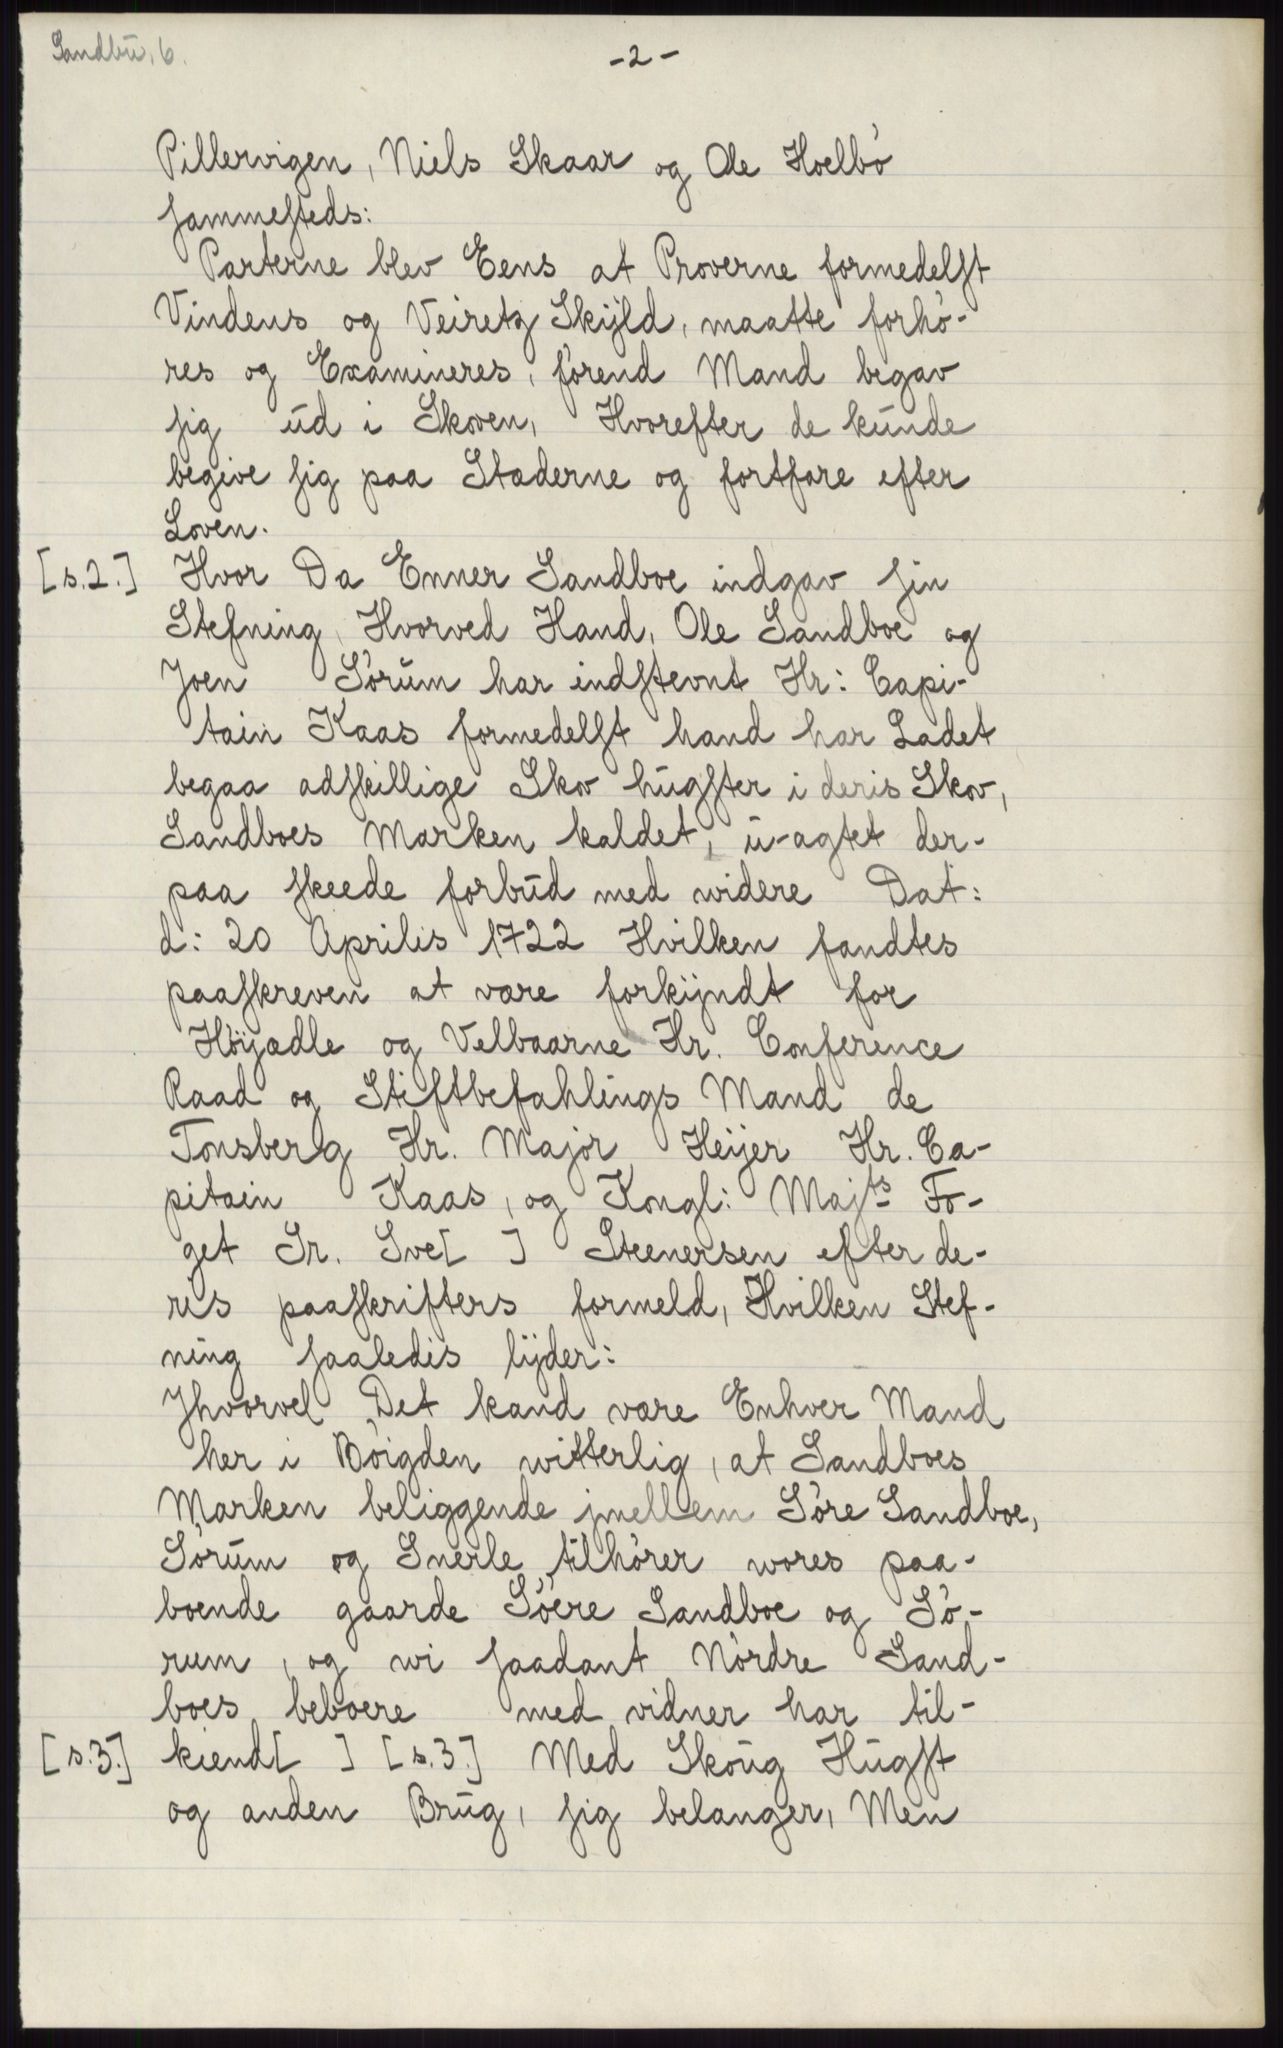 Sandbu, 6.
-2-
Pillervigen, Niels Skaar og Ole Hoelbó
sammesteds:
Parterne blev Eens at Proverne formedelst
Vindens og Veiretz Skijld, maatte forhó-
res og Examineres, fórend Mand begav
sig ud i Skoven, Hvorefter de kunde
begive sig paa Stæderne og fortfare efter
Loven.
[s.2.] Hvor Da Enner Sandboe indgav sin
Stefning, Hvorved Hand, Ole Sandboe og
Joen Sórum har indstevnt Hr: Capi-
tain Kaas formedelst hand har Ladet
begaa adskillige Skov hugster i deris Skov,
Sandboes Marken kaldet, u-agtet der-
paa skeede forbud med widere Dat:
d: 20 Aprilis 1722 Hvilken fandtes
paaskreven at være forkijndt for
Hòÿædle og Velbaarne Hr. Conference
Raad og Stiftbefahlings Mand de
Tonsberg Hr. Major Heijer Hr. Ca-
pitain Kaas, og Kongl: Majts Fo-
get Sr. Sve[ ] Steenersen efter de-
ris paaskrifters formeld, Hvilken Stef-
ning saaledis lijder:
Jhvorvel Det kand være Enhver Mand
her i Bóigden witterlig, at Sandboes
Marken beliggende jmellem Sóre Sandboe,
Sórum og Snerle tilhórer wores paa-
boende gaarde Sóere Sandboe og Só-
rum, og wi saadant Nórdre Sand-
boes beboere med vidner har til-
[s.3.] kiend[ ] [s.3.] Med Skoug Hugst
og anden Brug, sig belanger, Men